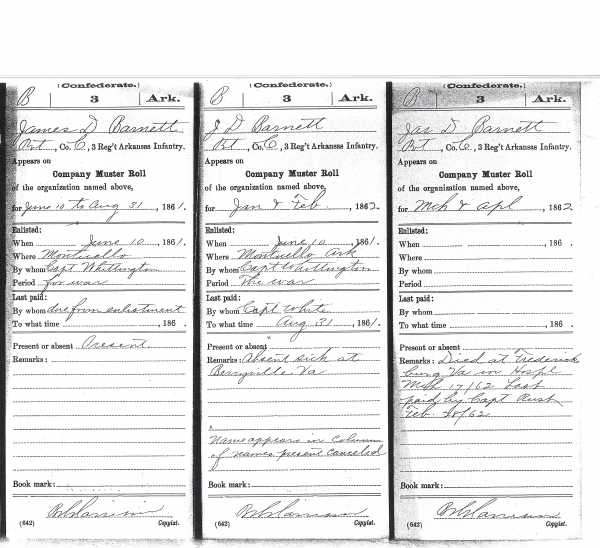 (Confederate.)
B | 3 | Ark.
James D Barnett
Pvt, Co. C, 3 Reg't Arkansas Infantry.
Appears on
Company Muster Roll
of the organization named above,
for June 10 to Aug 31, 1861.
Enlisted:
When June 10, 1861.
Where Monticello
By whom Capt Whittington
Period for war
Last paid:
By whom due from enlistment
To what time , 186 .
Present or absent Present.
Remarks:
Book mark:
Copyist.
(642)
(Confederate.)
B | 3 | Ark.
J D Barnett
Pvt, Co. C, 3 Reg't Arkansas Infantry.
Appears on
Company Muster Roll
of the organization named above,
for Jan & Feb., 1862.
Enlisted:
When June 10, 1861.
Where Monticello Ark
By whom Capt Whittington
Period The war
Last paid:
By whom Capt White
To what time Aug 31, 1861.
Present or absent
Remarks: Absent sick at
Berryville Va
Name appears in column
of names present canceled
Book mark:
Copyist.
(642)
(Confederate.)
B | 3 | Ark.
Jas D Barnett
Pvt, Co. C, 3 Reg't Arkansas Infantry.
Appears on
Company Muster Roll
of the organization named above,
for Mch & Apl, 1862
Enlisted:
When , 186 .
Where
By whom
Period
Last paid:
By whom
To what time , 186 .
Present or absent
Remarks: Died at Frederick
burg Va in Hospl
Mch 17/62 Last
paid by Capt Rust
Feb 28/62
Book mark:
Copyist.
(642)